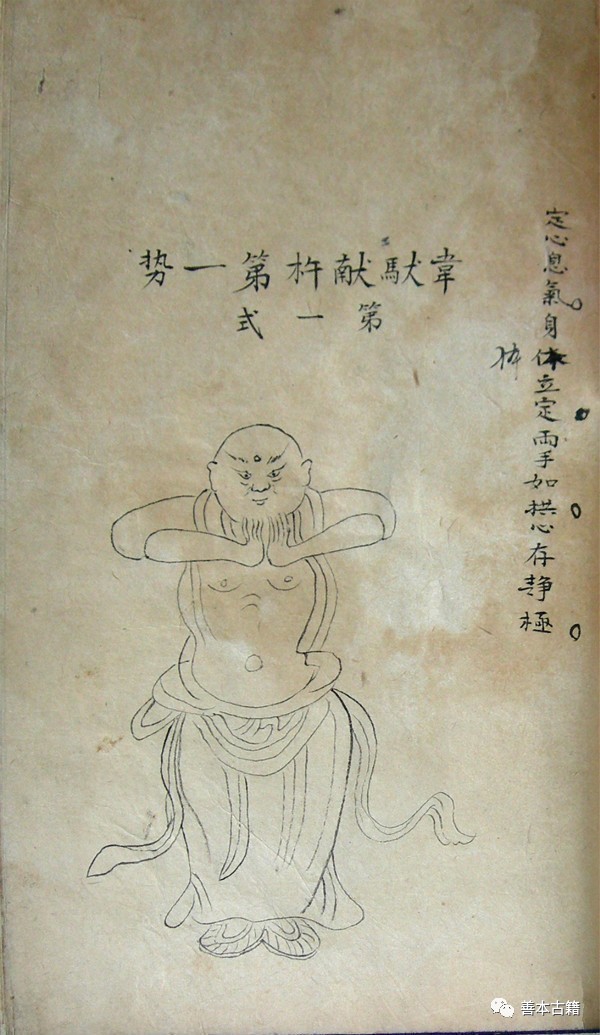 定心息氣身体立定兩手如拱心存静極
体
韋馱献杵第一势
第一式
善本古籍